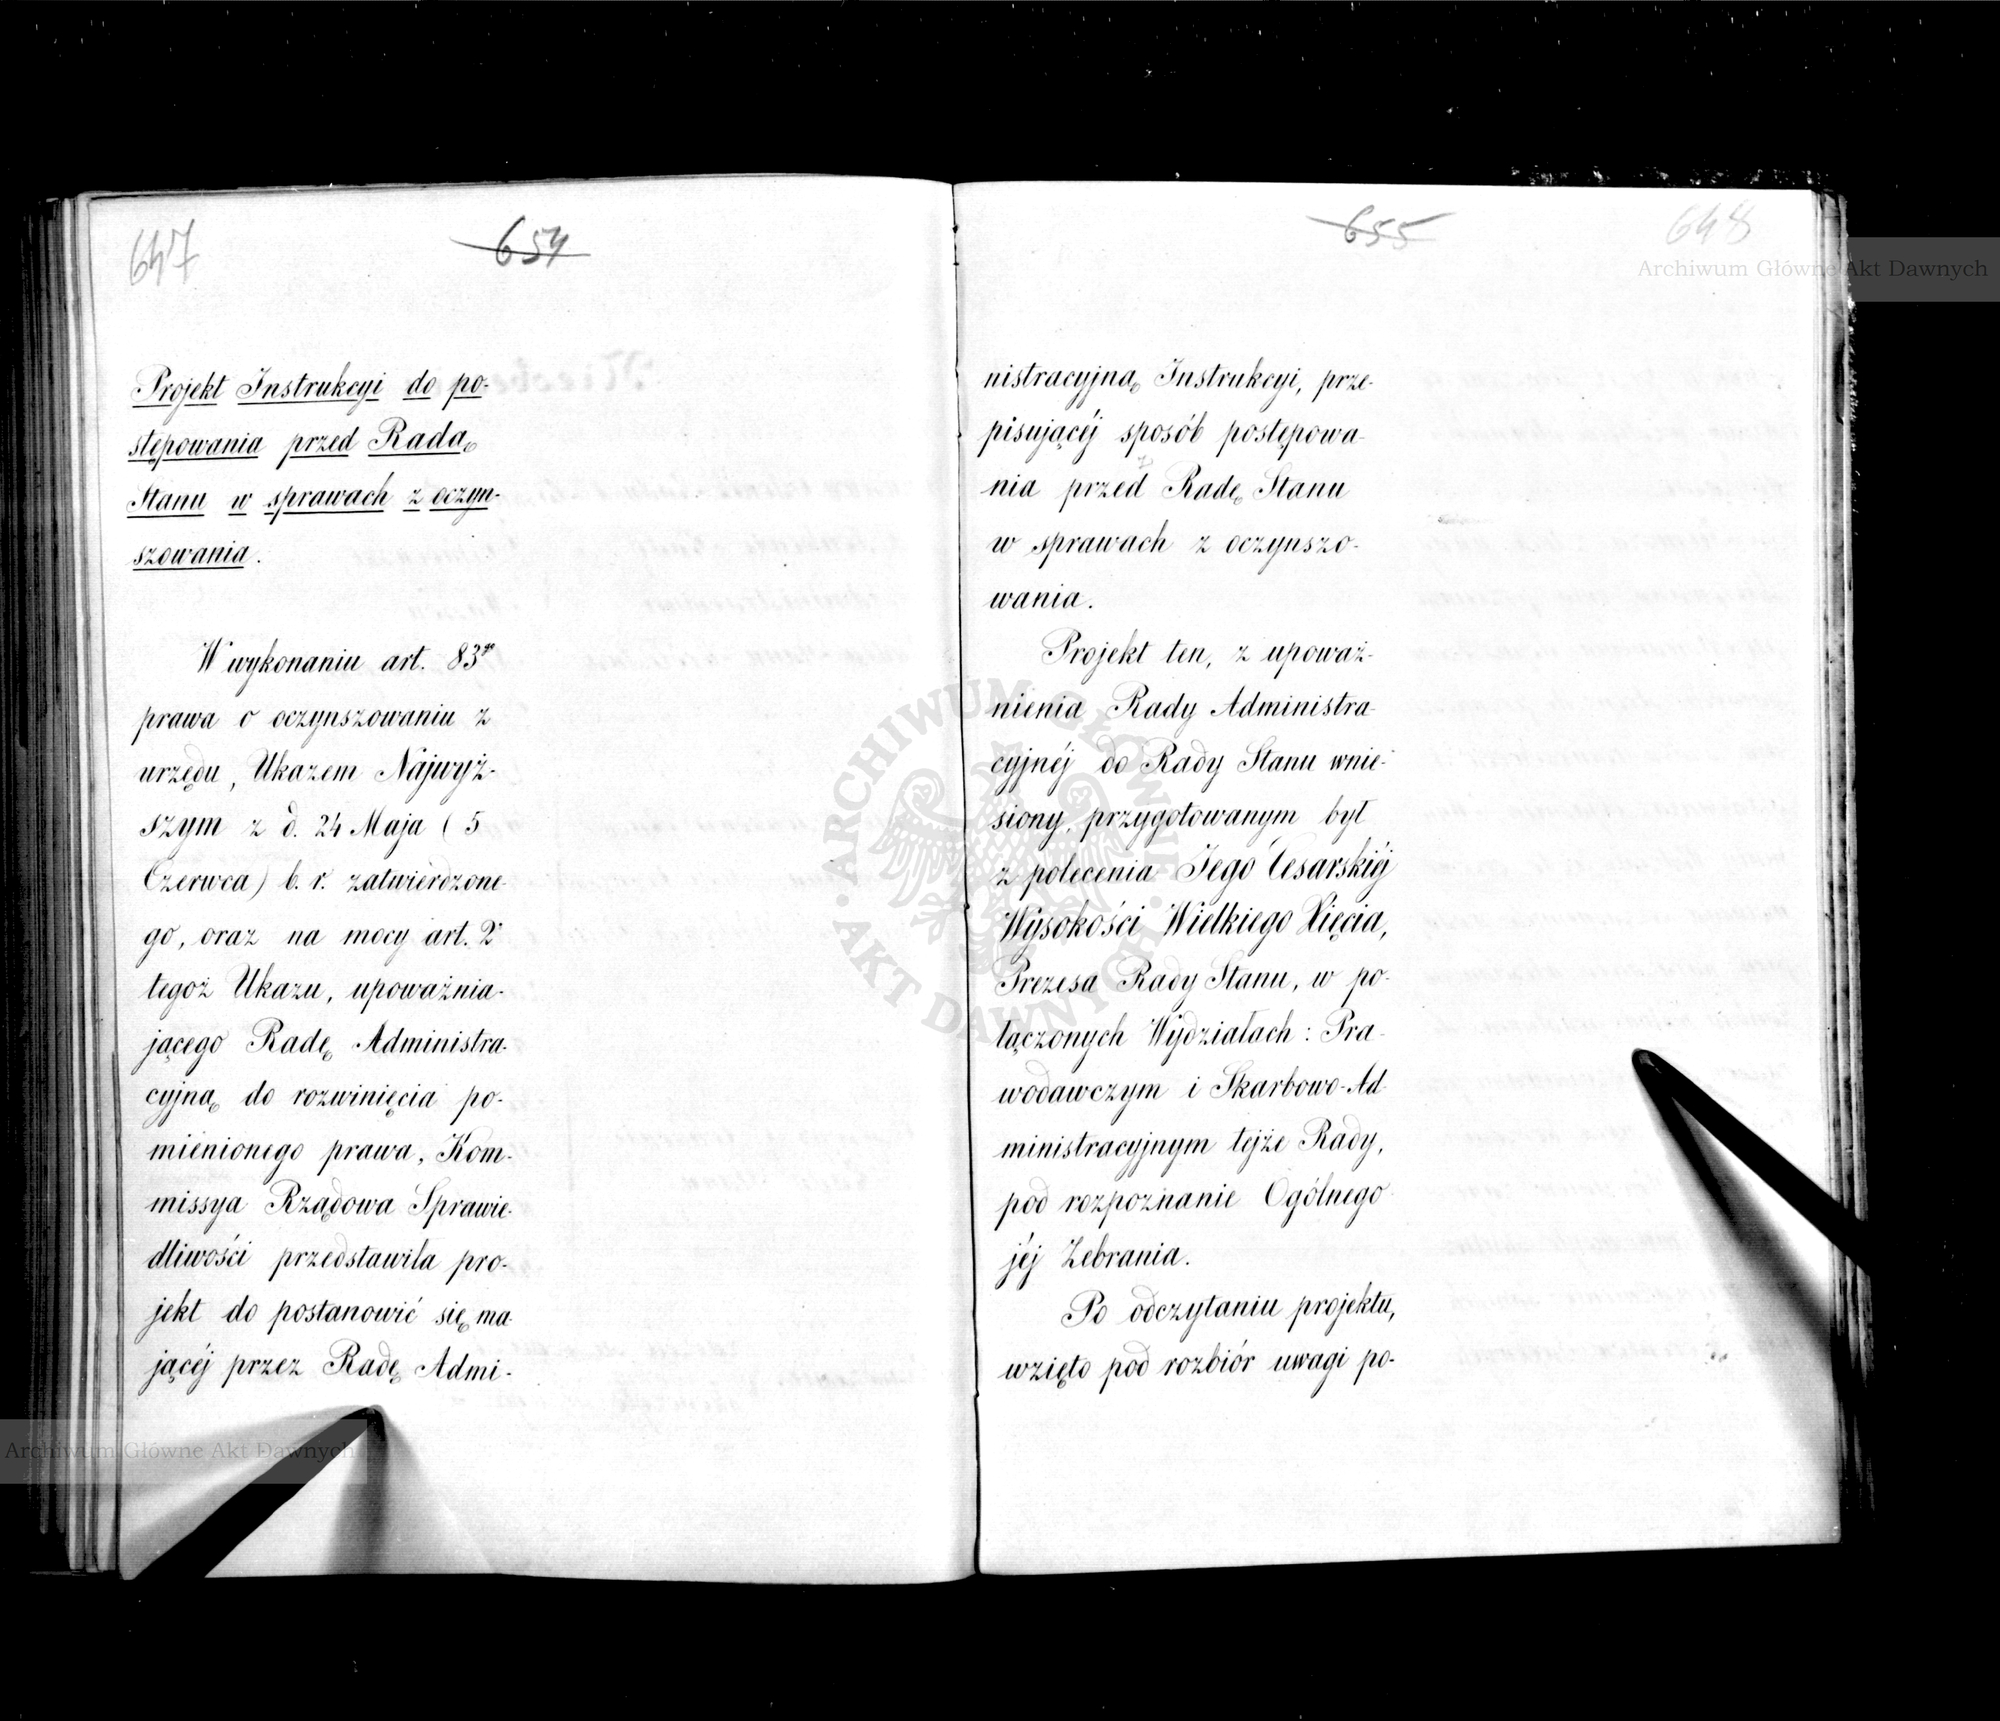 647
654
Projekt Instrukcyi do po-
stępowania przed Radą
Stanu w sprawach z oczyn-
szowania.
W wykonaniu art. 83go
prawa o oczynszowaniu z
urzędu, Ukazem Najwyż-
szym z d. 24 Maja (5
Czerwca) b. r. zatwierdzone-
go, oraz na mocy art. 2
tegoż Ukazu, upoważnia-
jącego Radę Administra-
cyjną do rozwinięcia po-
mienionego prawa, Kom-
missya Rządowa Sprawie-
dliwości przedstawiła pro-
jekt do postanowić się ma-
jącéj przez Radę Admi-
655
648
nistracyjną Instrukcyi, prze-
pisującéj sposób postępowa-
nia przed Radę Stanu
w sprawach z oczynszo-
wania.
Projekt ten, z upoważ-
nienia Rady Administra-
cyjnéj do Rady Stanu wnie-
siony, przygotowanym był
z polecenia Jego Cesarskiéj
Wysokości Wielkiego Xięcia,
Prezesa Rady Stanu, w po-
łączonych Wydziałach: Pra-
wodawczym i Skarbowo-Ad-
ministracyjnym tejże Rady,
pod rozpoznanie Ogólnego
jéj Zebrania.
Po odczytaniu projektu,
wzięto pod rozbiór uwagi po-
Archiwum Główne Akt Dawnych
ARCHIWUM GŁÓWNE · AKT DAWNYCH ·
Archiwum Główne Akt Dawnych